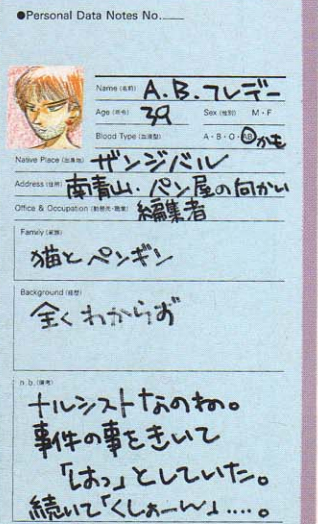 ●Personal Data Notes No.......
Name (名前) A.B.フレデー
Age (年令) 39 Sex (性別) M・F
Blood Type (血液型) A・B・O・AB かも
Native Place (出身地) ザンジバル
Address (住所) 南青山・パン屋の向かい
Office & Occupation (勤務先・職業) 編集者
Family (家族)
猫とペンギン
Background (経歴)
全くわからず
n.b. (備考)
ナルシストなのね。
事件の事をきいて
「はっ」としていた。
続いて「くしょーん」....。